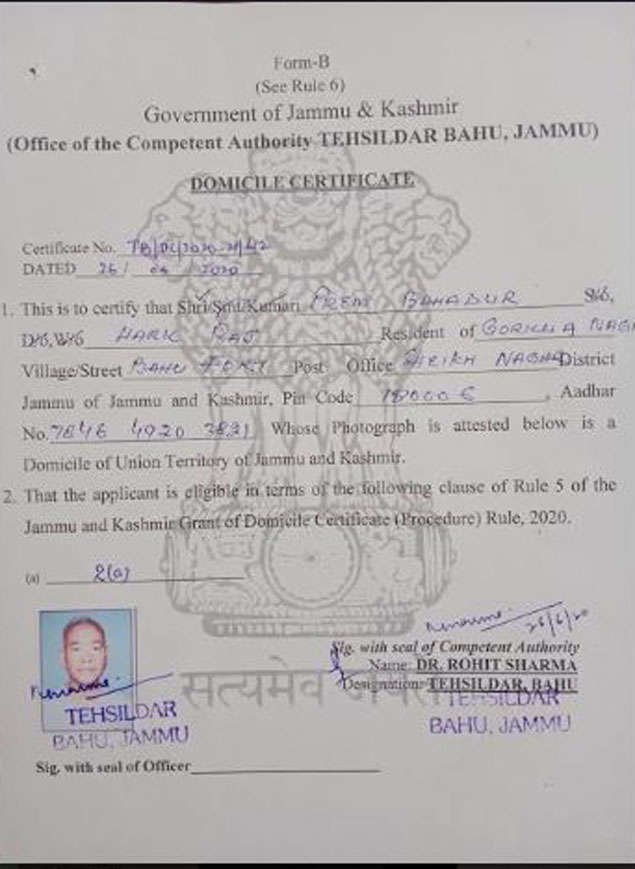 Form-B
(See Rule 6)
Government of Jammu & Kashmir
(Office of the Competent Authority TEHSILDAR BAHU, JAMMU)
DOMICILE CERTIFICATE
Certificate No.
DATED 26/ 06 / 2020
1. This is to certify that Shri/Smt/Kumari PREM BAHADUR S/o,
D/o, W/o HARK RAJ Resident of GORKHA NAGA
Village/Street BAHU FORT Post Office SHEIKH NAGAR District
Jammu of Jammu and Kashmir, Pin Code 180006, Aadhar
No. Whose Photograph is attested below is a
Domicile of Union Territory of Jammu and Kashmir.
2. That the applicant is eligible in terms of the following clause of Rule 5 of the
Jammu and Kashmir Grant of Domicile Certificate (Procedure) Rule, 2020.
(a) 2(a)
26/6/20
Sig. with seal of Competent Authority
Name: DR. ROHIT SHARMA
Designation: TEHSILDAR, BAHU
सत्यमेव जयते
TEHSILDAR
BAHU, JAMMU
TEHSILDAR
BAHU, JAMMU
Sig. with seal of Officer